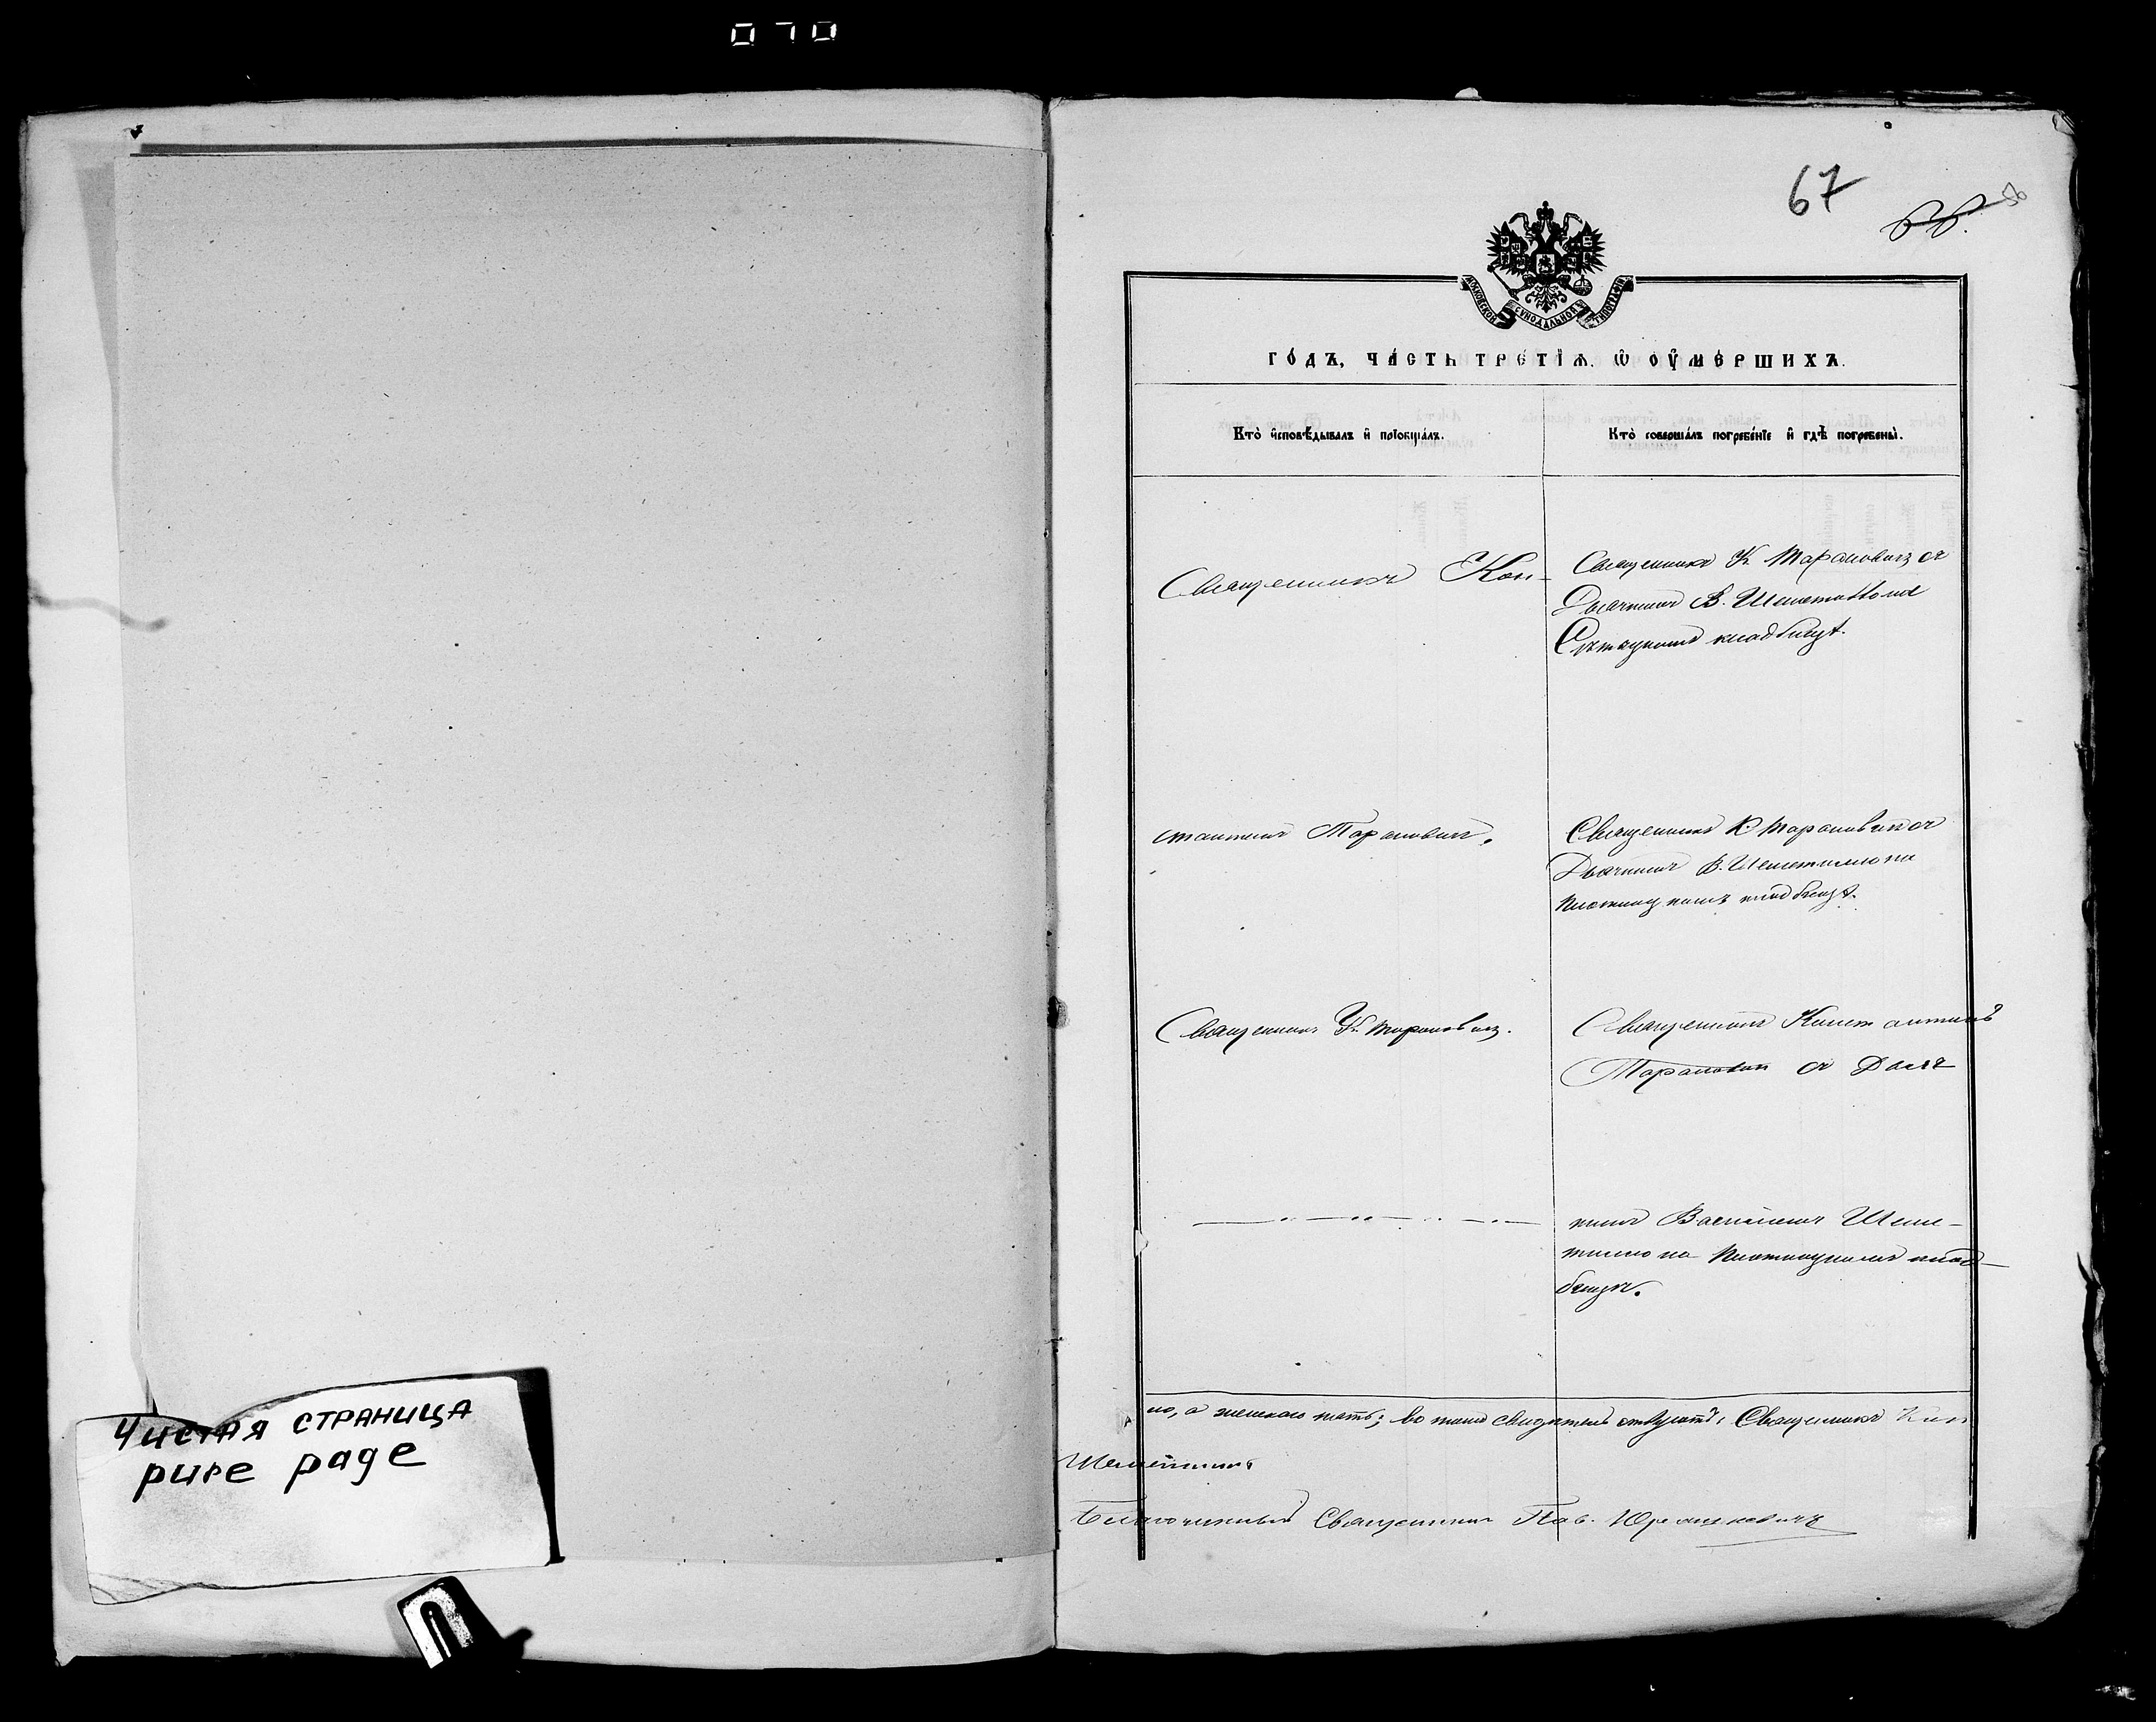 070
67
66.
МОСКОВСКОЙ СѴНОДАЛЬНОЙ ТИПОГРАФІИ
Го́дъ, ча́сть тре́тїѧ. ѡ҆ ᲂу҆ме́ршихъ.
Кто̀ и҆сповѣ́дывалъ и҆ прїобща́лъ.
Кто̀ соверша́лъ погребе́нїе и҆ гдѣ̀ погребены̀.
Священникъ Кон-
Священникъ К Тарановичъ съ
Дьячкомъ В. Шеметилло на
кладбищѣ.
стантинъ Тарановичъ.
Священникъ К. Тарановичъ съ
Дьячкомъ В. Шеметилло на
кладбищѣ.
Священникъ К. Тарановичъ.
Священникъ Константинъ
Тарановичъ съ Дьяч
комъ Василіемъ Шеме-
тилло на клад-
бищѣ.
но, а женскаго пять; въ томъ свидѣтельствуютъ: Священникъ Кон
Благочинный Священникъ Пав.
Чистая страница
pure page